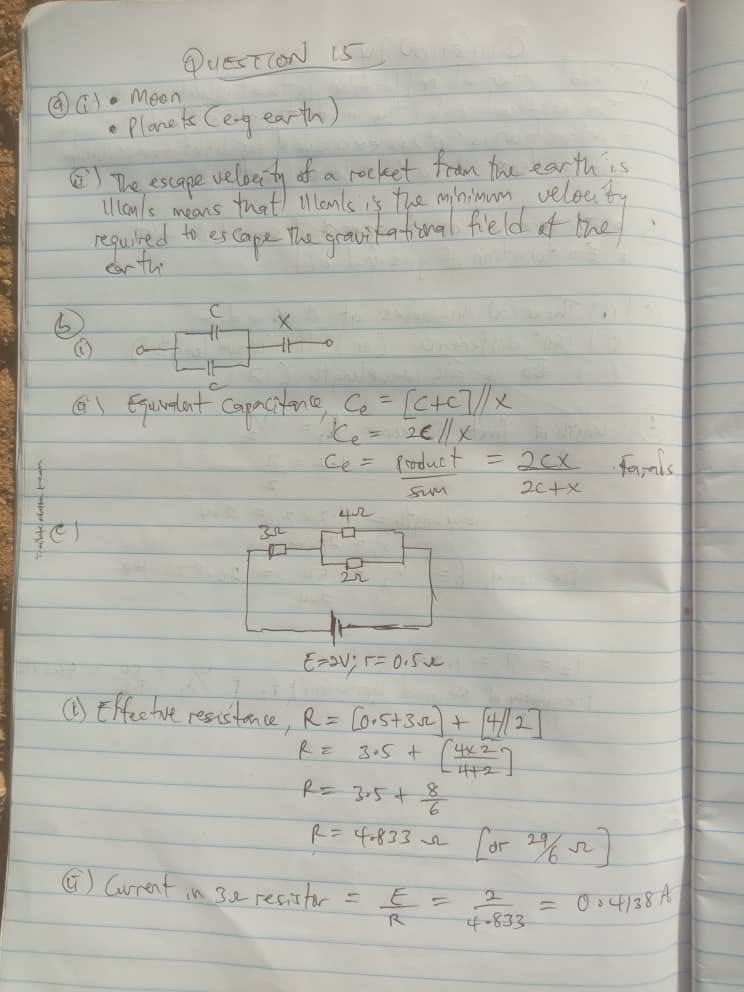 QUESTION 15
(a) (i) • Moon
• Planets (e.g earth)
(ii) The escape velocity of a rocket from the earth is
11km/s means that 11km/s is the minimum velocity
required to escape the gravitational field of the
earth.
(b)
(i)
C
X
C
(ii) Equivalent Capacitance, Ce = [C+C]//X
Ce = 2C//X
Ce = product/sum = 2CX/2C+X Farads
(c)
3Ω
4Ω
2Ω
E=2V; r= 0.5Ω
(i) Effective resistance, R = [0.5+3Ω] + [4//2]
R = 3.5 + [4x2/4+2]
R= 3.5 + 8/6
R= 4.833 Ω [or 29/6 Ω]
(ii) Current in 3Ω resistor = E/R = 2/4.833 = 0.4138A